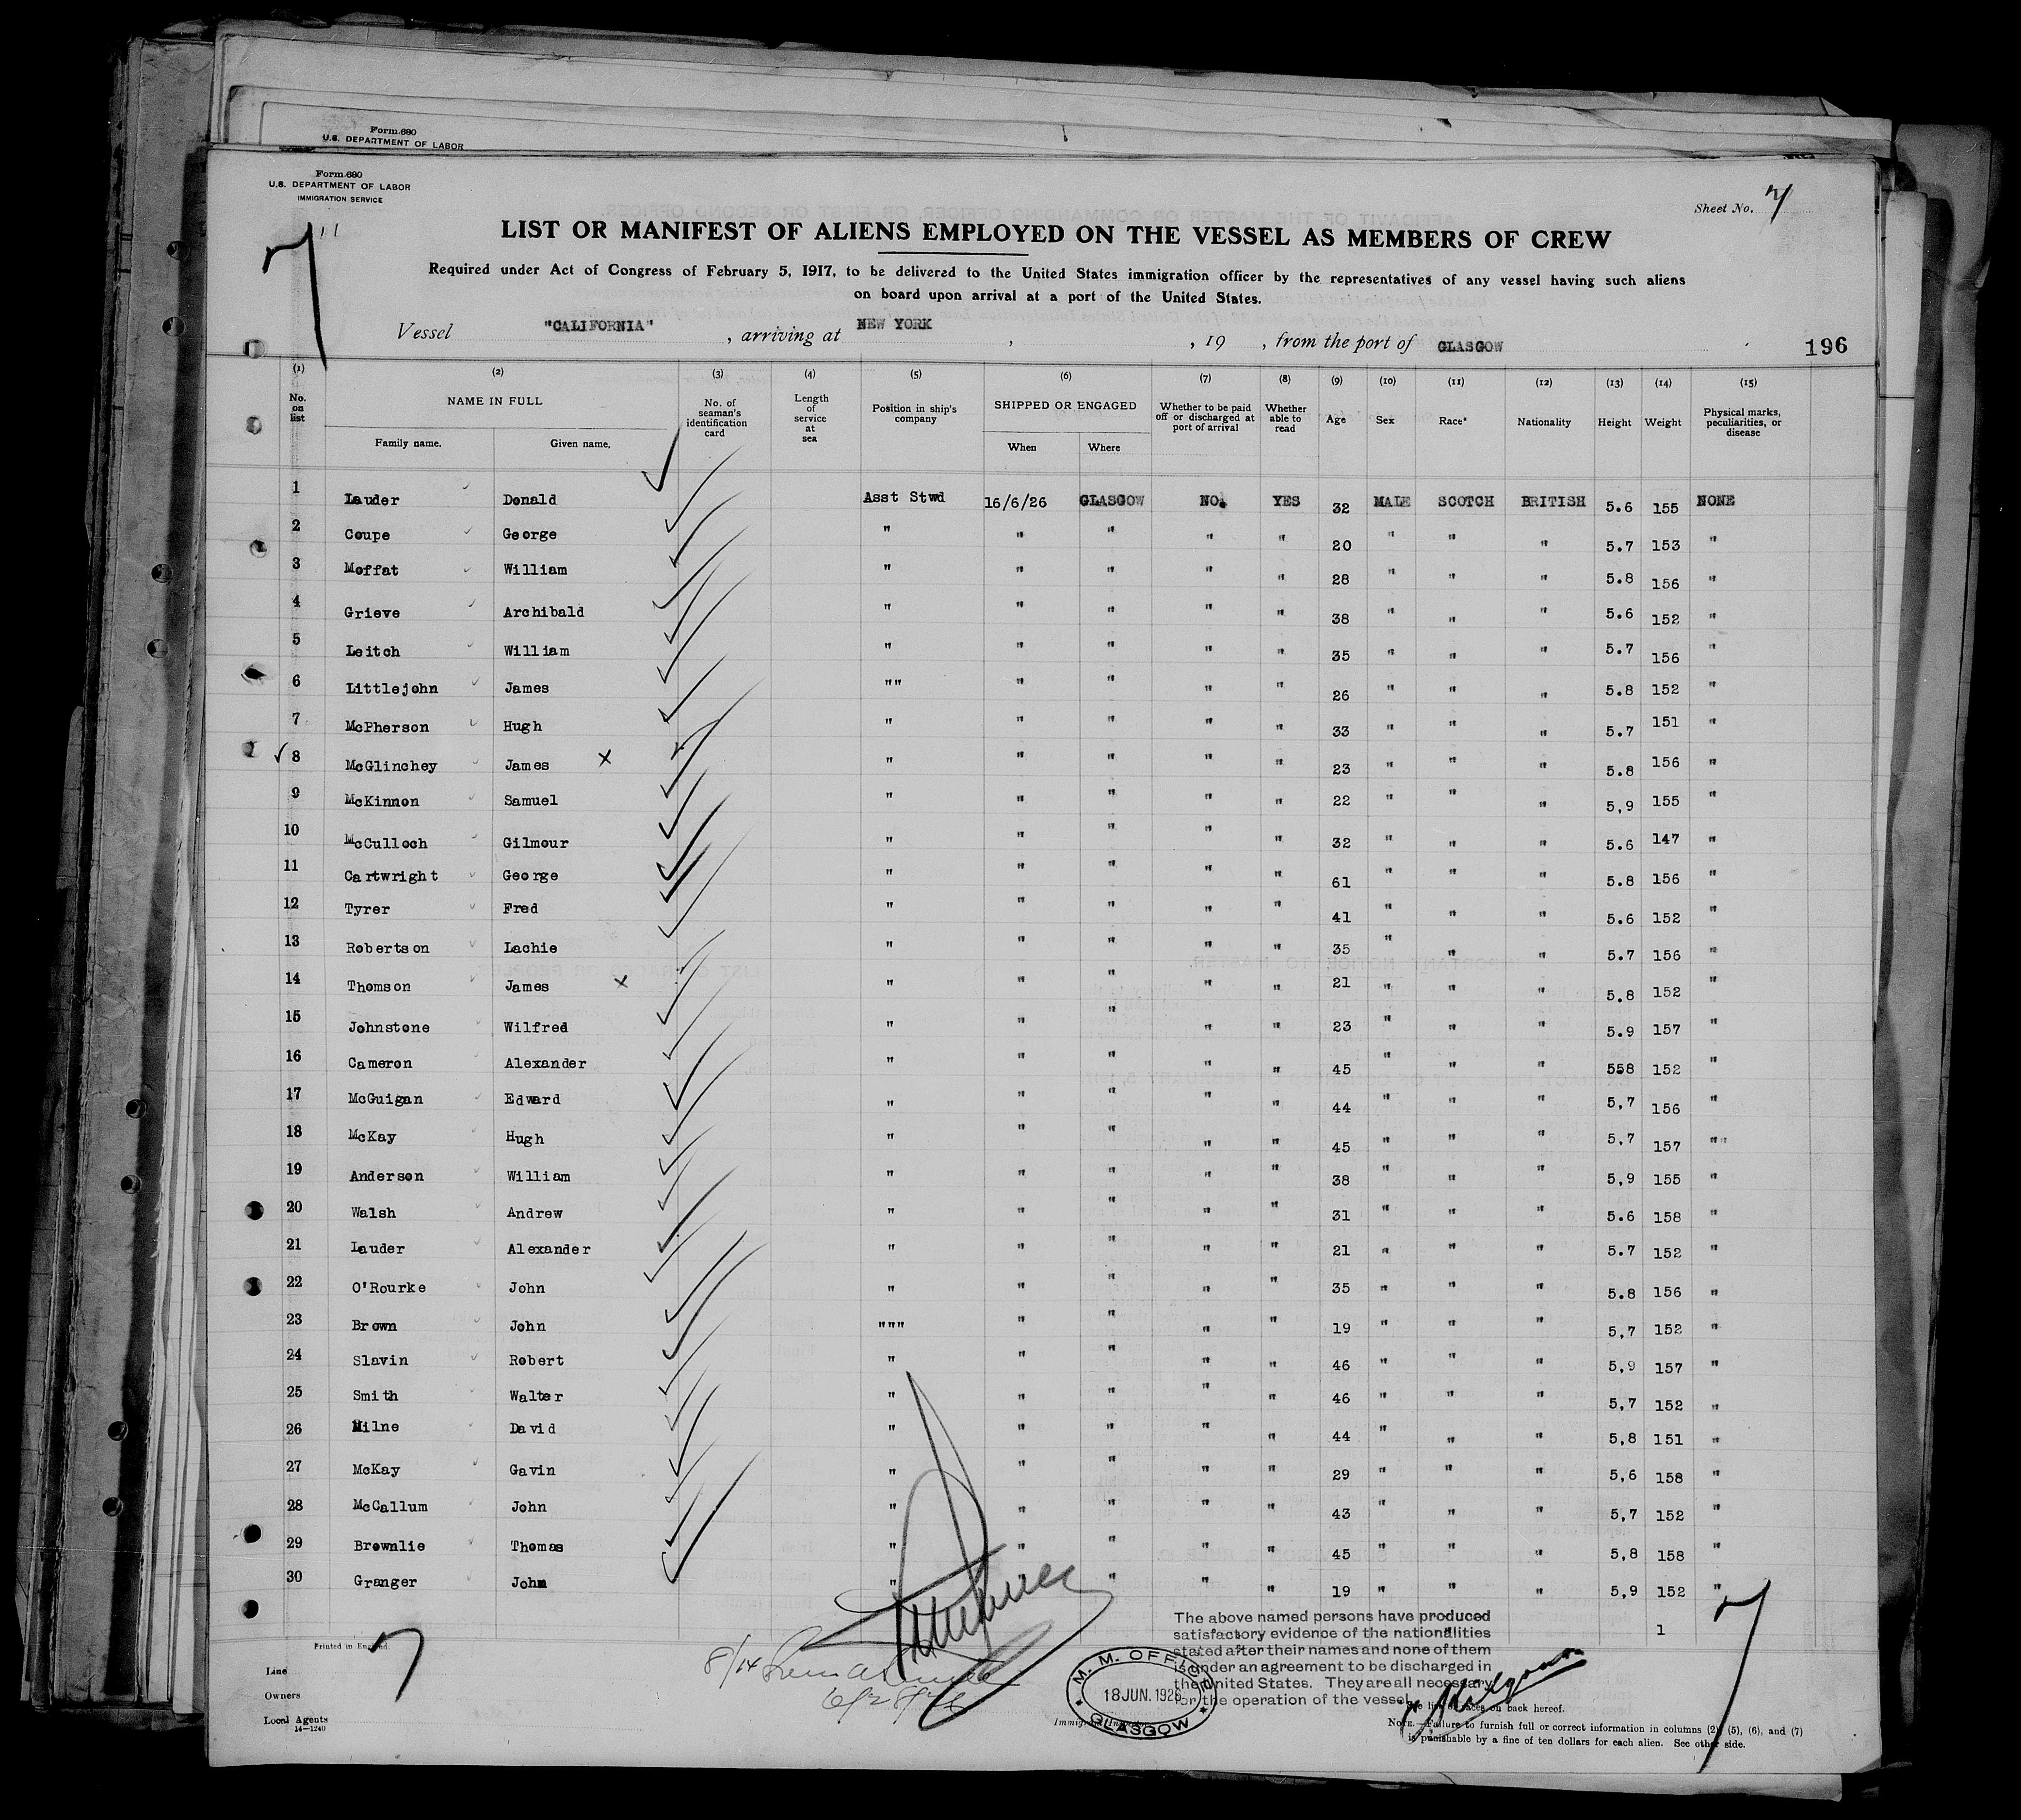 Form 680
U.S. DEPARTMENT OF LABOR
Form 680
U.S. DEPARTMENT OF LABOR
IMMIGRATION SERVICE
Sheet No. 7
7
LIST OR MANIFEST OF ALIENS EMPLOYED ON THE VESSEL AS MEMBERS OF CREW
Required under Act of Congress of February 5, 1917, to be delivered to the United States immigration officer by the representatives of any vessel having such aliens
on board upon arrival at a port of the United States.
Vessel "CALIFORNIA" , arriving at NEW YORK , , 19 , from the port of GLASGOW 196
(1) (2) (3) (4) (5) (6) (7) (8) (9) (10) (11) (12) (13) (14) (15)
No. on list NAME IN FULL Family name. Given name. No. of seaman's identification card Length of service at sea Position in ship's company SHIPPED OR ENGAGED When Where Whether to be paid off or discharged at port of arrival Whether able to read Age Sex Race* Nationality Height Weight Physical marks, peculiarities, or disease
1 Lauder Donald Asst Stwd 16/6/26 GLASGOW NO. YES 32 MALE SCOTCH BRITISH 5.6 155 NONE
2 Coupe George " " " " " 20 " " " 5.7 153 "
3 Moffat William " " " " " 28 " " " 5.8 156 "
4 Grieve Archibald " " " " " 38 " " " 5.6 152 "
5 Leitch William " " " " " 35 " " " 5.7 156 "
6 Littlejohn James "" " " " " 26 " " " 5.8 152 "
7 McPherson Hugh " " " " " 33 " " " 5.7 151 "
8 McGlinchey James X " " " " " 23 " " " 5.8 156 "
9 McKinnon Samuel " " " " " 22 " " " 5,9 155 "
10 McCulloch Gilmour " " " " " 32 " " " 5.6 147 "
11 Cartwright George " " " " " 61 " " " 5.8 156 "
12 Tyrer Fred " " " " " 41 " " " 5.6 152 "
13 Robertson Lachie " " " " " 35 " " " 5.7 156 "
14 Thomson James X " " " " " 21 " " " 5.8 152 "
15 Johnstone Wilfred " " " " " 23 " " " 5.9 157 "
16 Cameron Alexander " " " " " 45 " " " 558 152 "
17 McGuigan Edward " " " " " 44 " " " 5,7 156 "
18 McKay Hugh " " " " " 45 " " " 5,7 157 ""
19 Anderson William " " " " " 38 " " " 5,9 155 "
20 Walsh Andrew " " " " " 31 " " " 5.6 158 "
21 Lauder Alexander " " " " " 21 " " " 5.7 152 "
22 O'Rourke John " " " " " 35 " " " 5.8 156 "
23 Brown John """ " " " " 19 " " " 5,7 152 "
24 Slavin Robert " " " " " 46 " " " 5,9 157 "
25 Smith Walter " " " " " 46 " " " 5,7 152 "
26 Milne David " " " " " 44 " " " 5,8 151 "
27 McKay Gavin " " " " " 29 " " " 5,6 158 "
28 McCallum John " " " " " 43 " " " 5,7 152 "
29 Brownlie Thomas " " " " " 45 " " " 5,8 158 "
30 Granger John " " " " " 19 " " " 5,9 152 "
1
The above named persons have produced
satisfactory evidence of the nationalities
stated after their names and none of them
is under an agreement to be discharged in
the United States. They are all necessary
for the operation of the vessel.
Printed in England.
7
7
8/14
6/28/26
Line
Owners
Local Agents
14-1240
Immigrant Inspector.
M. M. OFFICE
18 JUN. 1926
GLASGOW
See list of races on back hereof.
NOTE.—Failure to furnish full or correct information in columns (2), (5), (6), and (7)
is punishable by a fine of ten dollars for each alien. See other side.